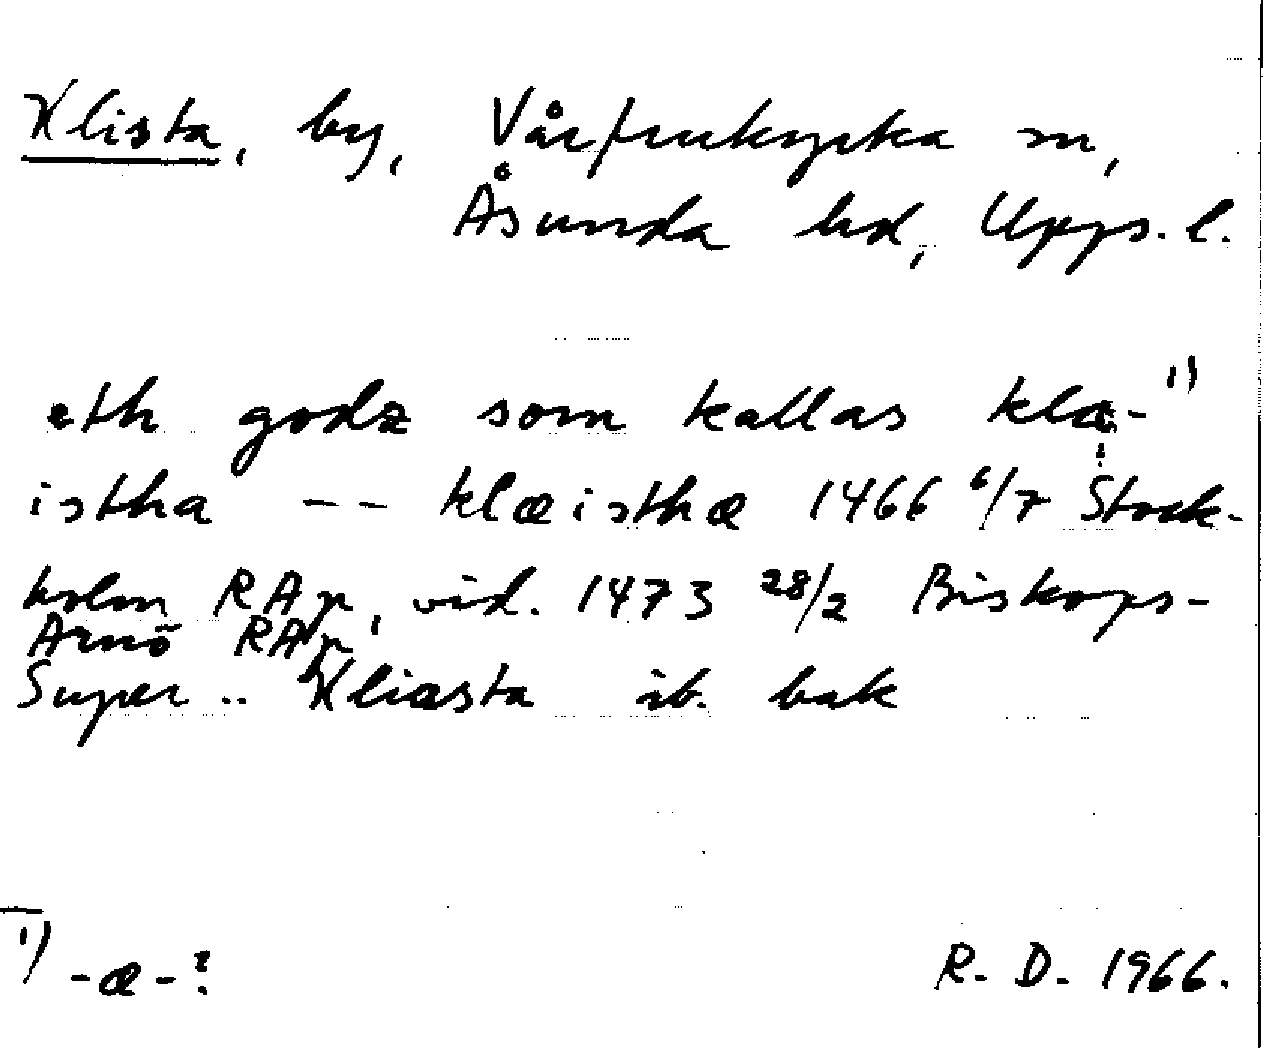 Klista, by, Vårfrukyrka sn,
Åsunda hd, Upps. l.
eth godz som kallas kla- 1)
istha -- klæisthæ 1466 6/7 Stock-
holm RAp, vid. 1473 28/2 Biskops-
Arnö RAp
Super .. Kliasta ib. bak
1) -æ-?
R. D. 1966.